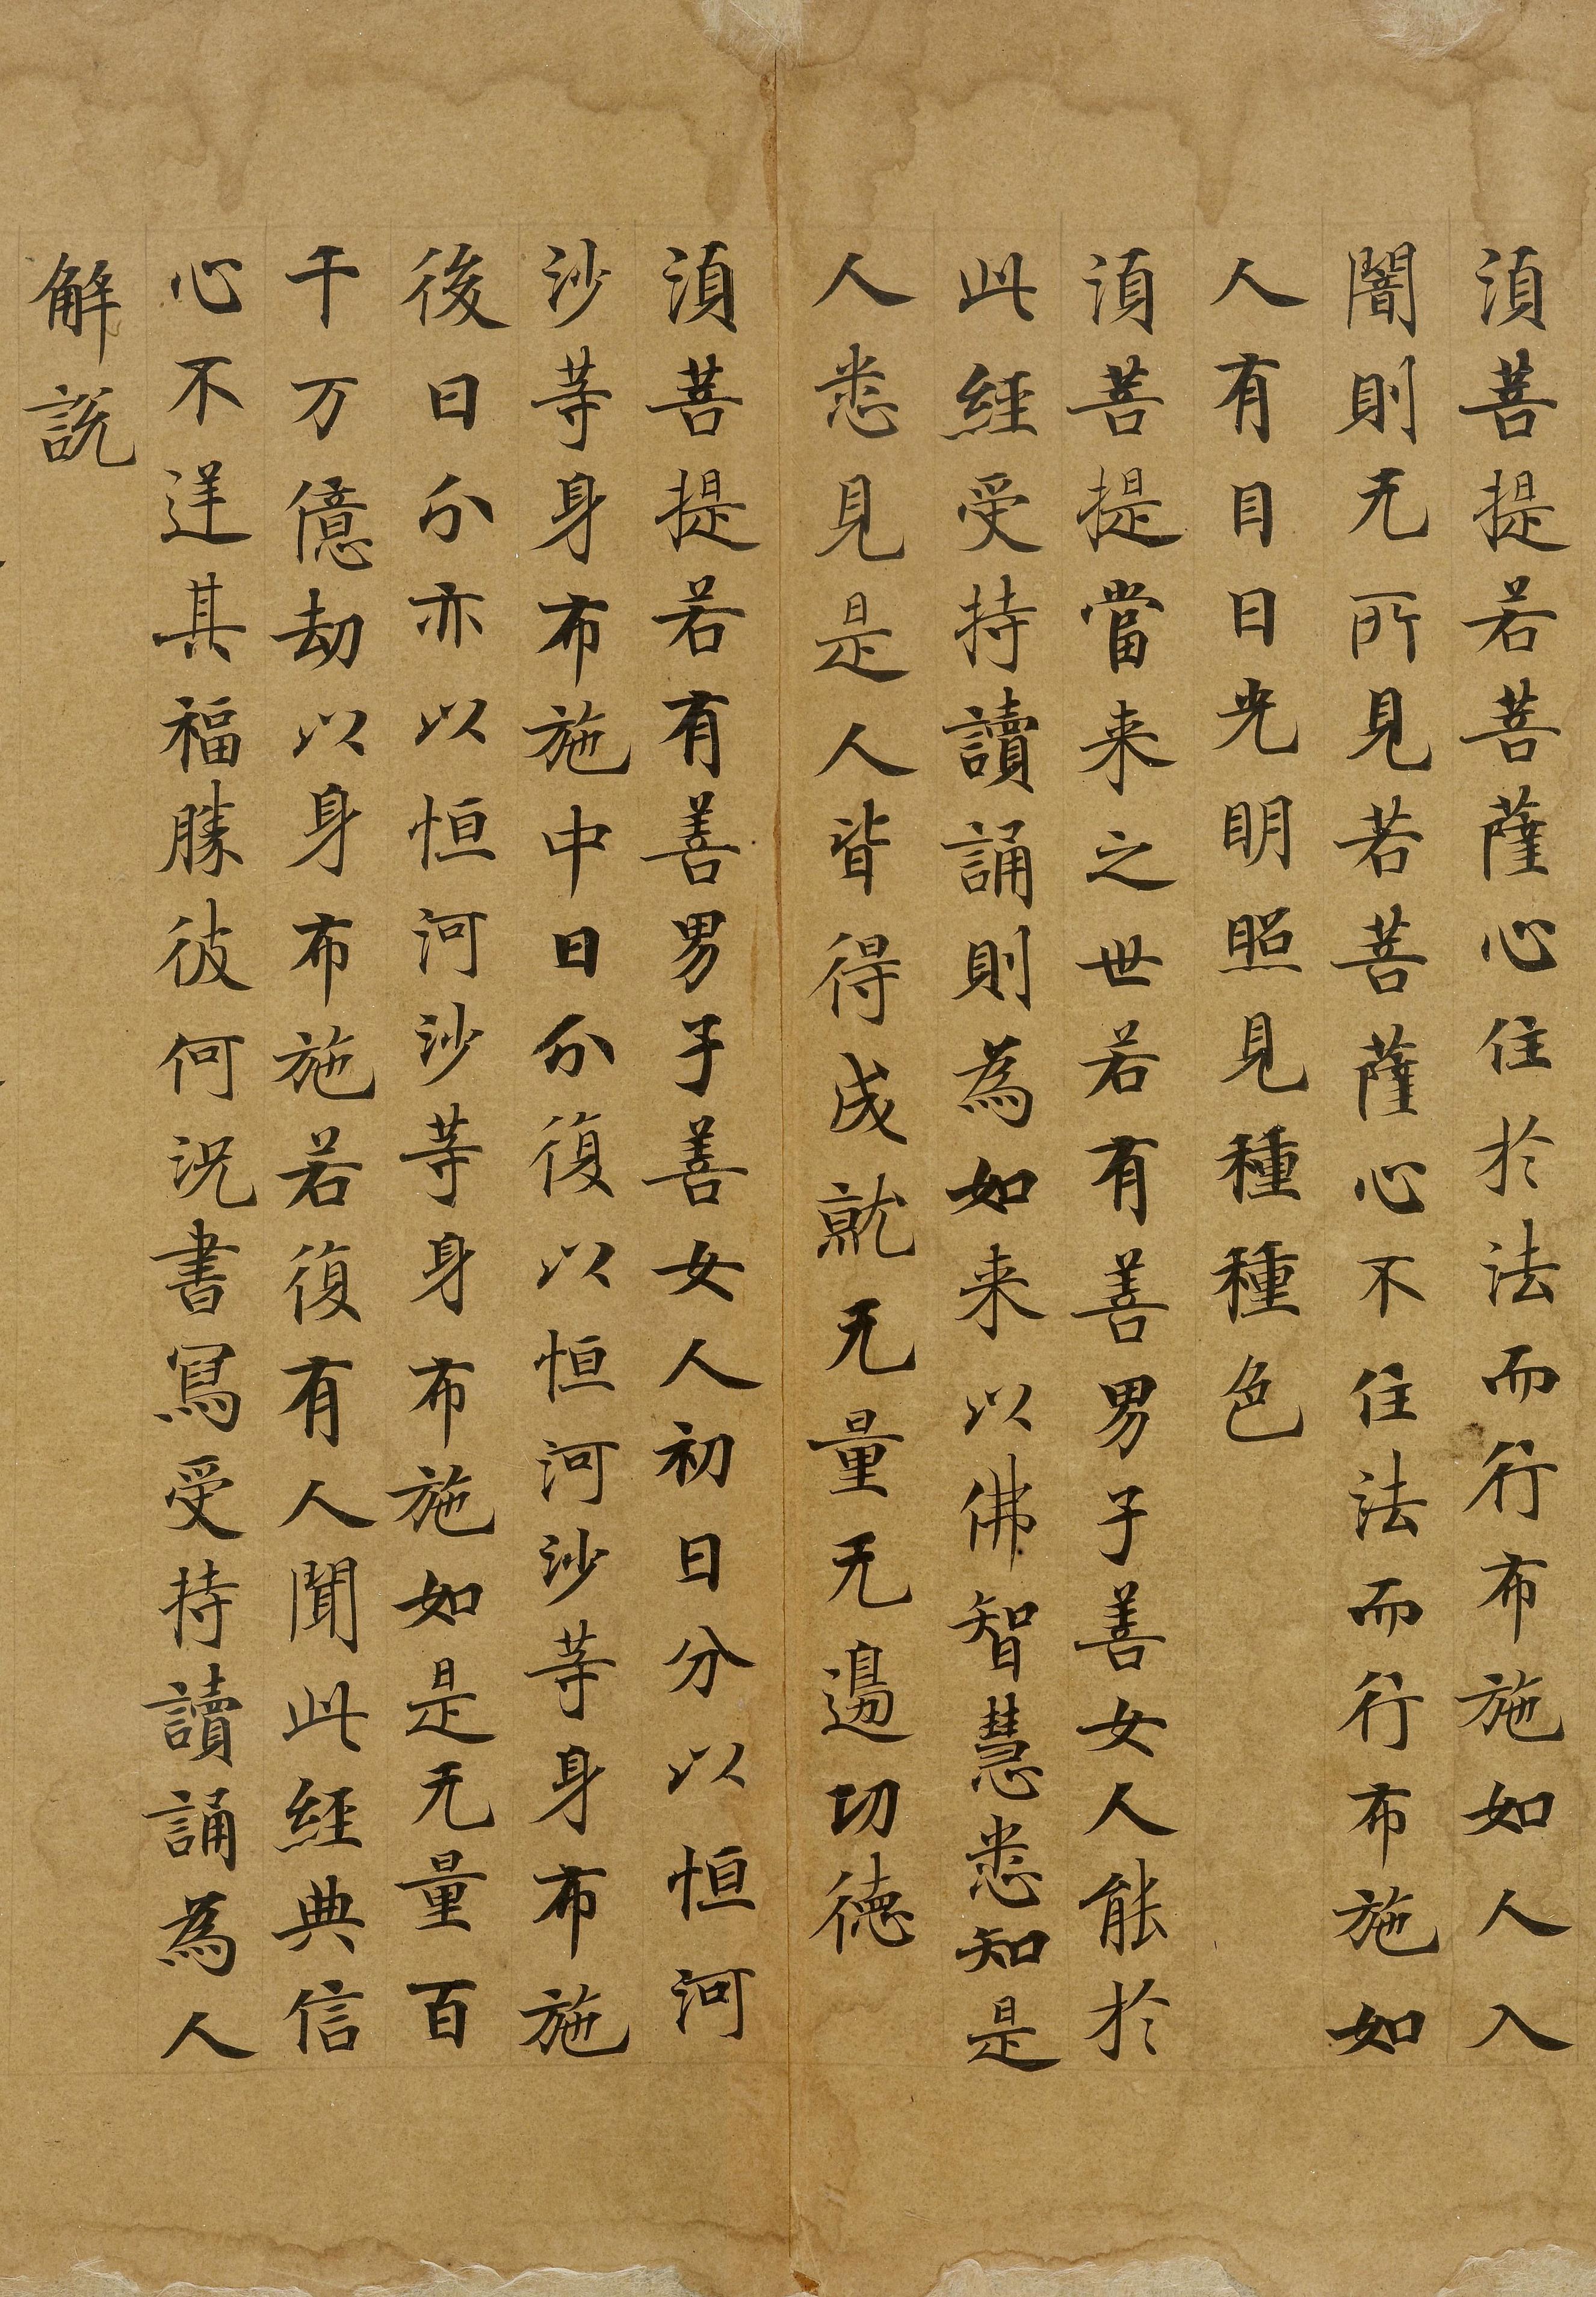 湏菩提若菩薩心住於法而行布施如人入
闇則无所見若菩薩心不住法而行布施如
人有目日光明照見種種色
湏菩提當来之世若有善男子善女人能於
此經受持讀誦則為如来以佛智慧悉知是
人悉見是人皆得成就无量无邊功德
湏菩提若有善男子善女人初日分以恒河
沙等身布施中日分復以恒河沙等身布施
後日分亦以恒河沙等身布施如是无量百
千万億劫以身布施若復有人聞此經典信
心不逆其福勝彼何況書寫受持讀誦為人
解說